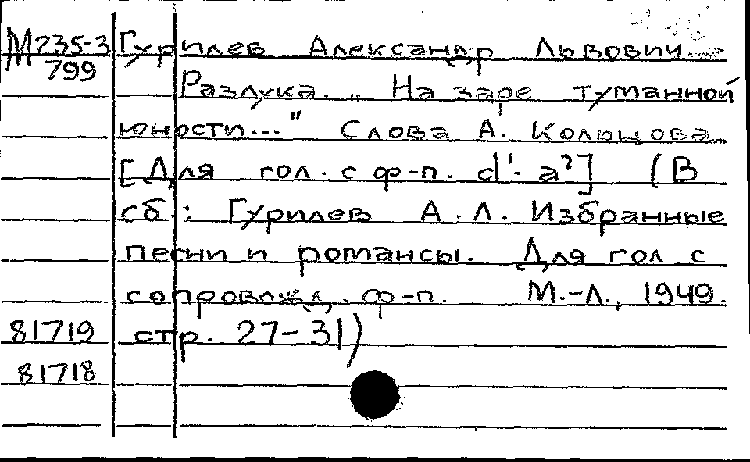 М235-3 Гурилев Александр Львович
799 Разлука. „На заре туманной
юности..." Слова А. Кольцова
[Для гол. с ф-п. d¹- a²] (В
сб.: Гурилев А.Л. Избранные
песни и романсы. Для гол с
сопровожд. ф-п. М.-Л., 1949.
81719 стр. 27-31)
81718